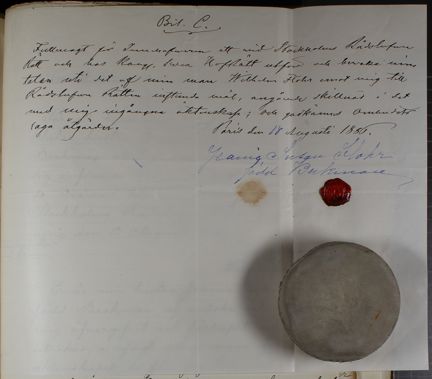 Bil. C.
Fullmagt för Innehafvaren att vid Stockholms Rådstufvu
Rätt och hos Kongl. Svea Hofrätt utföra och bevaka min
talan uti det af min man Wilhelm Flohr emot mig till
Rådstufvu Rätten instämda mål, angående skillnad i det
med mig ingångna äktenskap; och godkännes Ombudets
laga åtgärder.
Paris den 18 Augusti
Susen Flohr
född